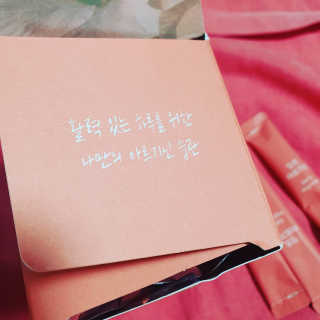 활력 있는 하루를 위한
나만의 아르기닌 습관